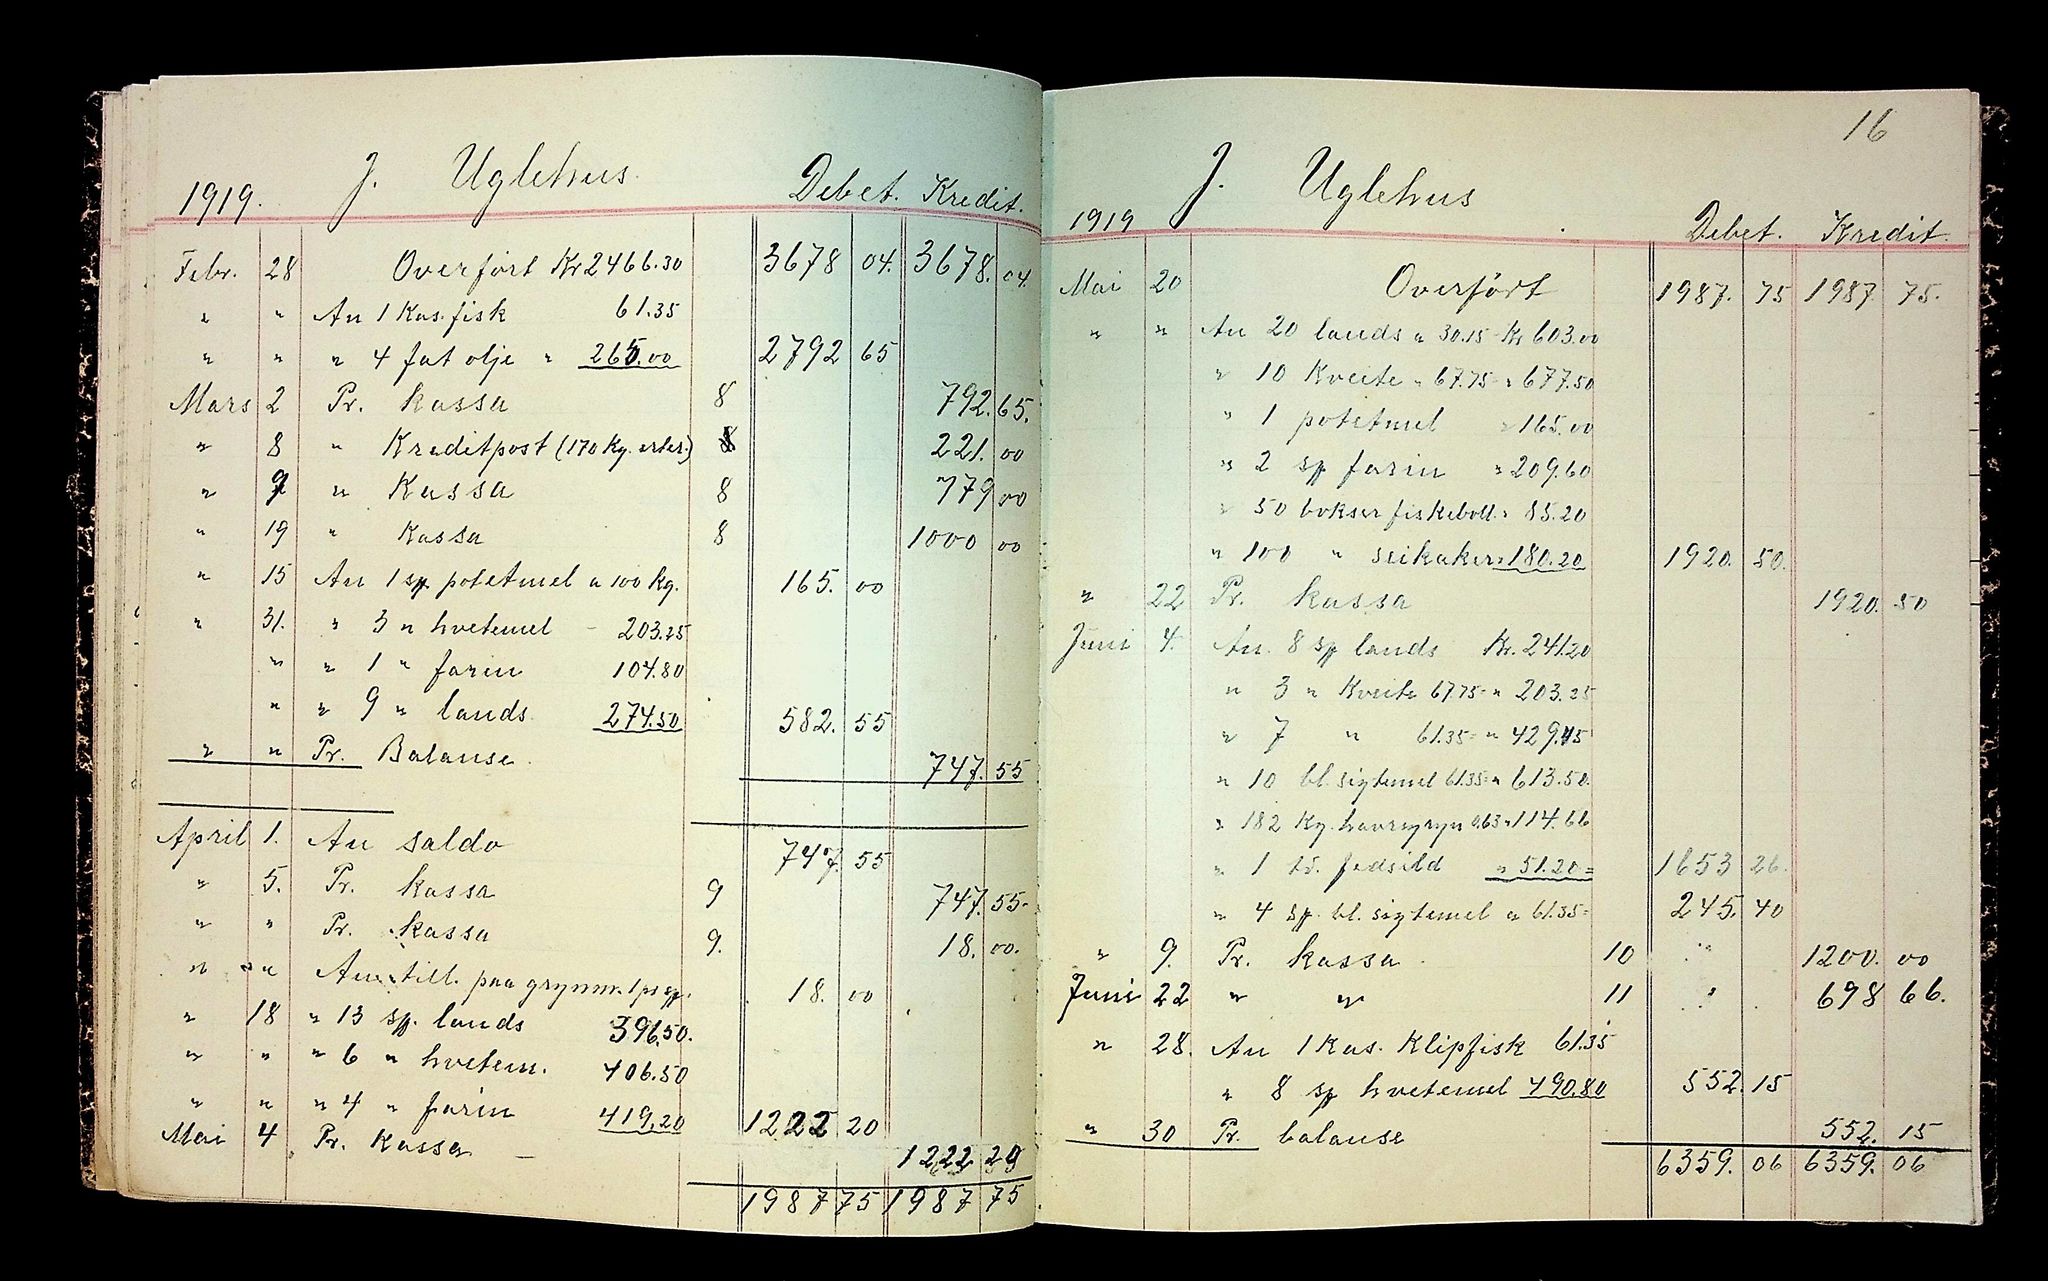 1919. J. Uglehus. Debet. Kredit.
Febr. 28 Overført Kr 2466.30 3678 04. 3678. 04.
" " An 1 Kas. fisk 61.35
" " " 4 fat olje " 265.00 2792 65
Mars 2 Pr. Kassa 8 792. 65.
" 8 " Kreditpost (170 Kg. erter.) 8 221. 00
" 9 " Kassa 8 779 00
" 19 " Kassa 8 1000 00
" 15 An 1 sp. potetmel a 100 Kg. 165. 00
" 31. " 3 " hvetemel - 203.25
" " 1 " farin 104.80
" " 9 " lands 274.50 582. 55
" " Pr. Balanse. 747. 55
April 1. An Saldo 747. 55
" 5. Pr. Kassa 9 747. 55-
" " Pr. Kassa 9. 18. 00.
" " An till. paa grynm. 1 pr sp. 18. 00
" 18 " 13 sp. lands 396.50.
" " " 6 " hvetem. 406.50
" " " 4 " farin 419.20 1222 20
Mai 4 Pr. Kassa - 1222 20
1987 75 1987 75
16
1919 J. Uglehus Debet. Kredit.
Mai 20 Overført 1987. 75 1987 75.
" " An 20 lands a 30.15 - Kr 603.00
" 10 Kveite " 67.75 - " 677.50
" 1 potetmel " 165.00
" 2 sp farin " 209.60
" 50 bokser fiskeboll. " 85.20
" 100 " seikaker " 180.20 1920. 50.
" 22 Pr. Kassa 1920. 50
Juni 4. An. 8 sp lands Kr. 241.20
" 3 " Kveite 67.75 - " 203.25
" 7 " 61.35 - " 429.45
" 10 bl. sigtemel 61.35 - " 613.50.
" 182 Kg. havregryn a.63 " 114.66
" 1 td. fedsild " 51.20 = 1653 26.
" 4 sp. bl. sigtemel a 61.35 = 245. 40
" 9. Pr. Kassa 10 1200. 00
Juni 22 " " 11 698 66.
" 28. An 1 Kas. Klipfisk 61.35
" 8 sp hvetemel 490.80 552. 15
" 30 Pr. balanse 552. 15
6359. 06 6359. 06